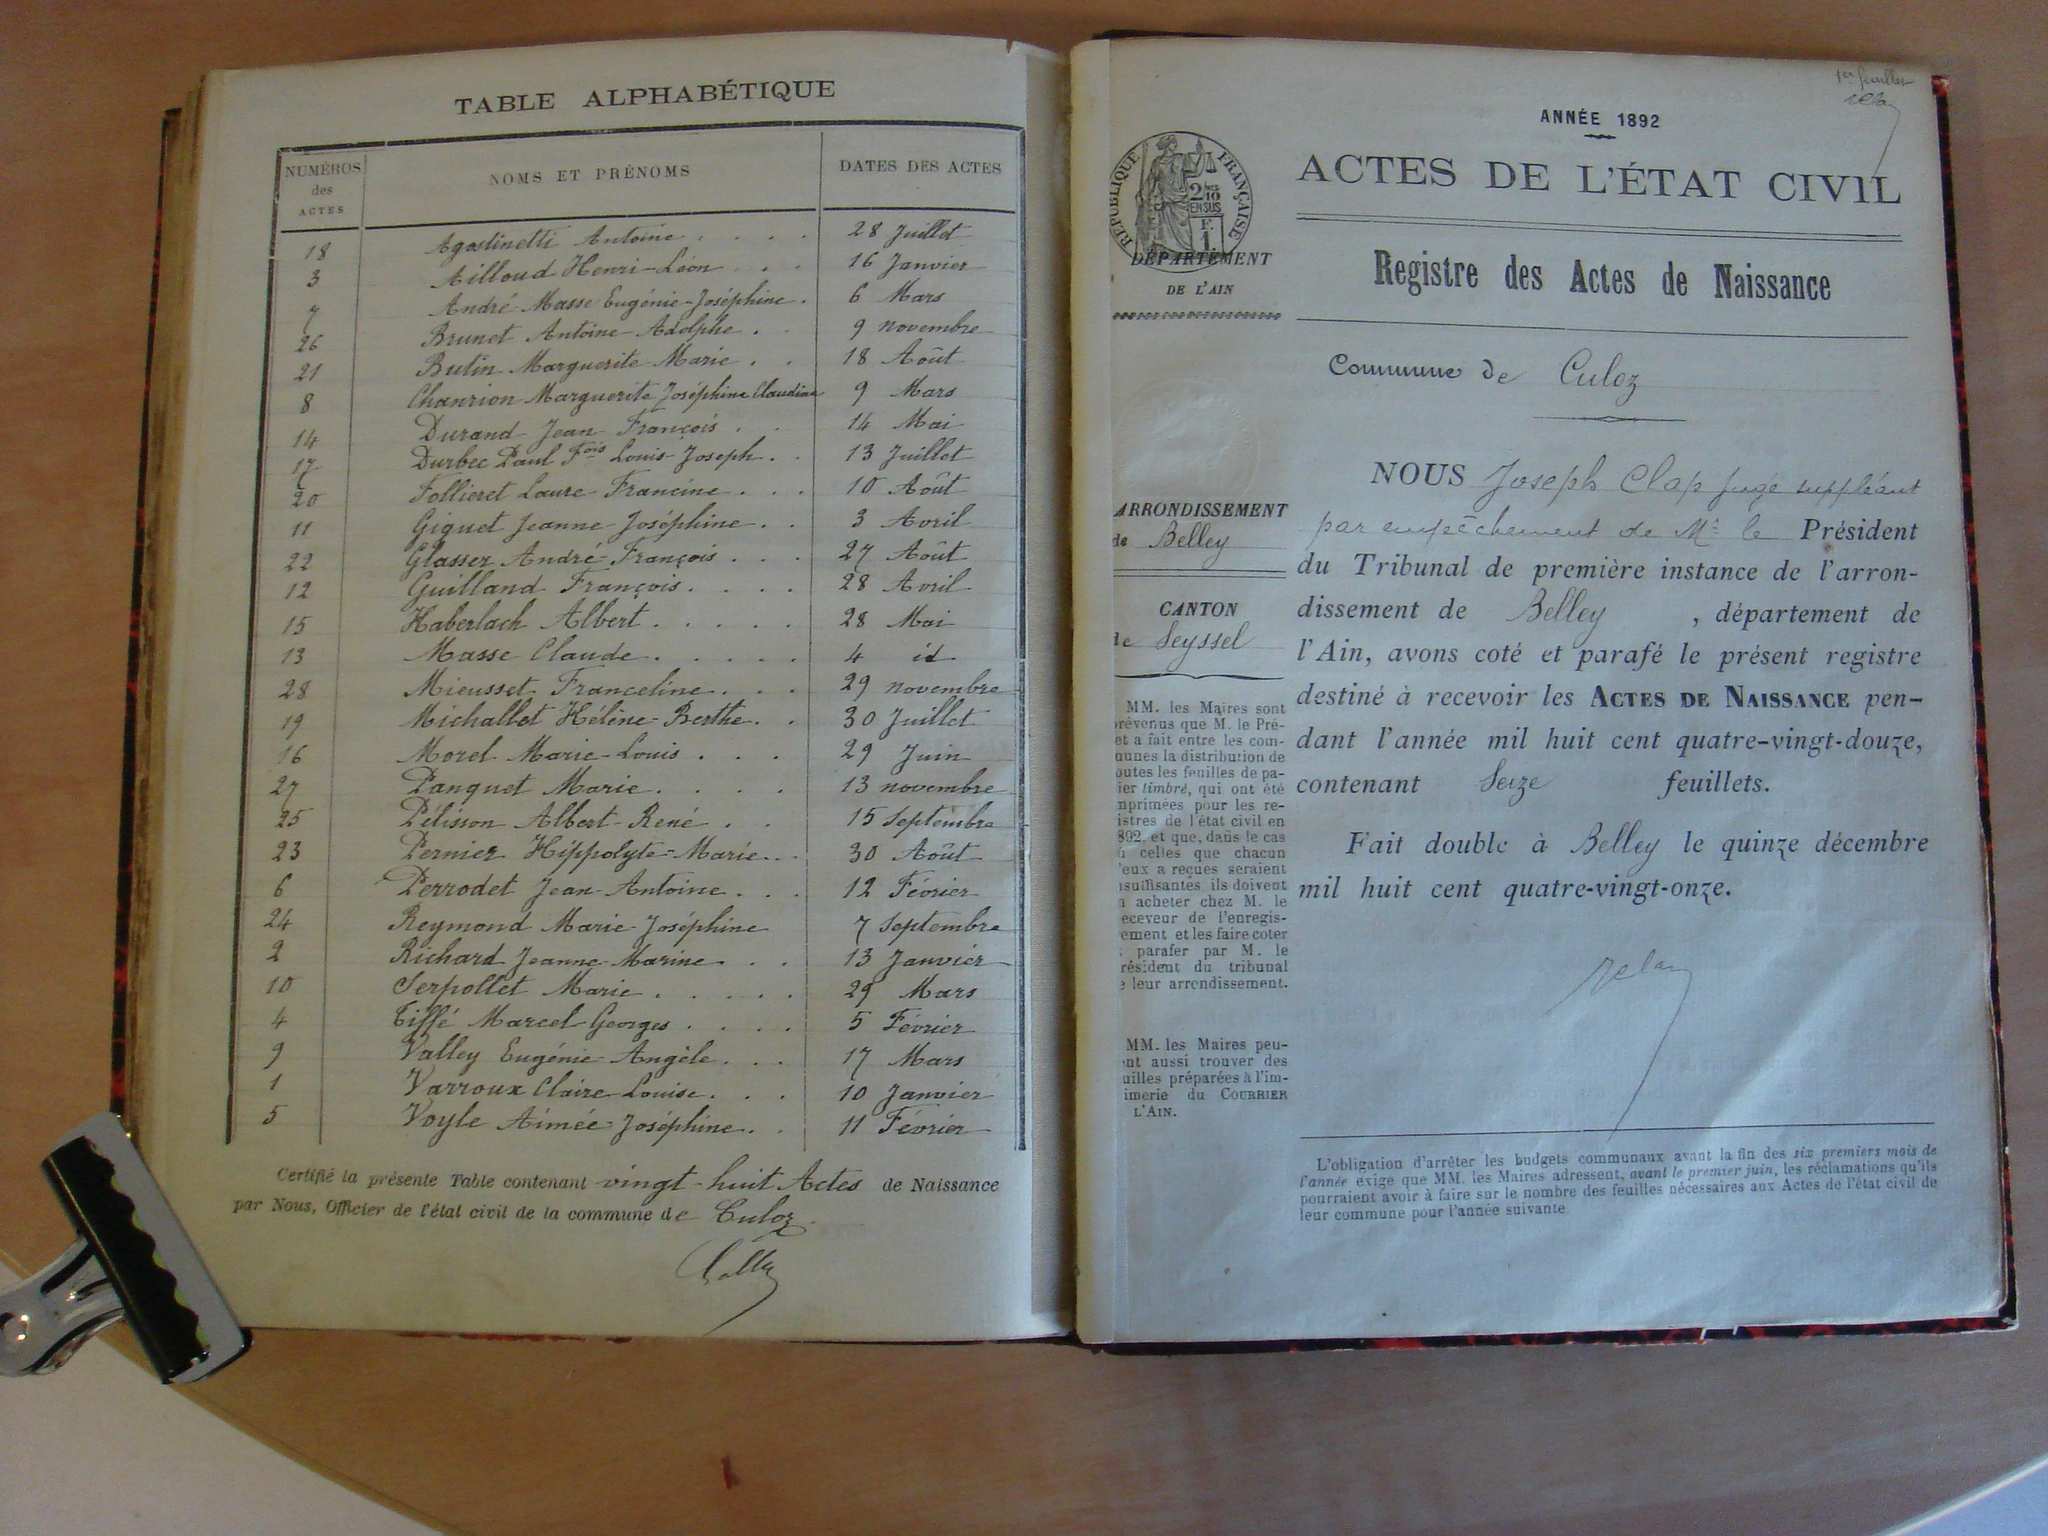 TABLE ALPHABÉTIQUE
NUMÉROS des ACTES NOMS ET PRÉNOMS DATES DES ACTES
18 Agostinetti Antoine . . . . 28 Juillet
3 Ailloud Henri-Léon . . . 16 Janvier
7 André Masse Eugénie-Joséphine . 6 Mars
26 Brunet Antoine-Adolphe . . 9 novembre
21 Butin Marguerite Marie . . 18 Août
8 Chanrion Marguerite Joséphine Claudine 9 Mars
14 Durand Jean François . . 14 Mai
17 Durbec Paul Fois Louis-Joseph . . 13 Juillet
20 Follieret Laure-Francine . . . 10 Août
11 Giguet Jeanne-Joséphine . . 3 Avril
22 Glasser André-François . . . 27 Août
12 Guilland François . . . . 28 Avril
15 Haberlach Albert . . . . . 28 Mai
13 Masse Claude . . . . . 4 id
28 Mieusset Franceline . . . 29 novembre
19 Michallet Hélène-Berthe . . 30 Juillet
16 Morel Marie-Louis . . . 29 Juin
27 Panquet Marie . . . . 13 novembre
25 Pélisson Albert-René . . 15 Septembre
23 Pernier Hippolyte-Marie . . 30 Août
6 Perrodet Jean-Antoine . . . 12 Février
24 Reymond Marie Joséphine 7 Septembre
2 Richard Jeanne-Marine . . 13 Janvier
10 Serpollet Marie . . . . . 29 Mars
4 Tiffé Marcel-Georges . . . . 5 Février
9 Valley Eugénie-Angèle . . . 17 Mars
1 Varroux Claire-Louise . . . 10 Janvier
5 Voyle Aimée-Joséphine . . 11 Février
Certifié la présente Table contenant vingt-huit Actes de Naissance
par Nous, Officier de l'état civil de la commune de Culoz.
1er feuillet
ANNÉE 1892
ACTES DE L'ÉTAT CIVIL
Registre des Actes de Naissance
Commune de Culoz
RÉPUBLIQUE FRANÇAISE
2/10
EN SUS
F.
1
DÉPARTEMENT
DE L'AIN
ARRONDISSEMENT
de Belley
CANTON
de Seyssel
MM. les Maires sont
révenus que M. le Pré-
et a fait entre les com-
nunes la distribution de
outes les feuilles de pa-
ier timbré, qui ont été
mprimées pour les re-
istres de l'état civil en
892, et que, dans le cas
celles que chacun
'eux a reçues seraient
nsuffisantes, ils doivent
acheter chez M. le
eceveur de l'enregis-
ement et les faire coter
parafer par M. le
résident du tribunal
e leur arrondissement.
MM. les Maires peu-
nt aussi trouver des
uilles préparées à l'im-
imerie du COURRIER
L'AIN.
NOUS Joseph Clap juge suppléant
par empêchement de Mr le Président
du Tribunal de première instance de l'arron-
dissement de Belley , département de
l'Ain, avons coté et parafé le présent registre
destiné à recevoir les ACTES DE NAISSANCE pen-
dant l'année mil huit cent quatre-vingt-douze,
contenant Seize feuillets.
Fait double à Belley le quinze décembre
mil huit cent quatre-vingt-onze.
L'obligation d'arrêter les budgets communaux avant la fin des six premiers mois de
l'année exige que MM. les Maires adressent, avant le premier juin, les réclamations qu'ils
pourraient avoir à faire sur le nombre des feuilles nécessaires aux Actes de l'état civil de
leur commune pour l'année suivante